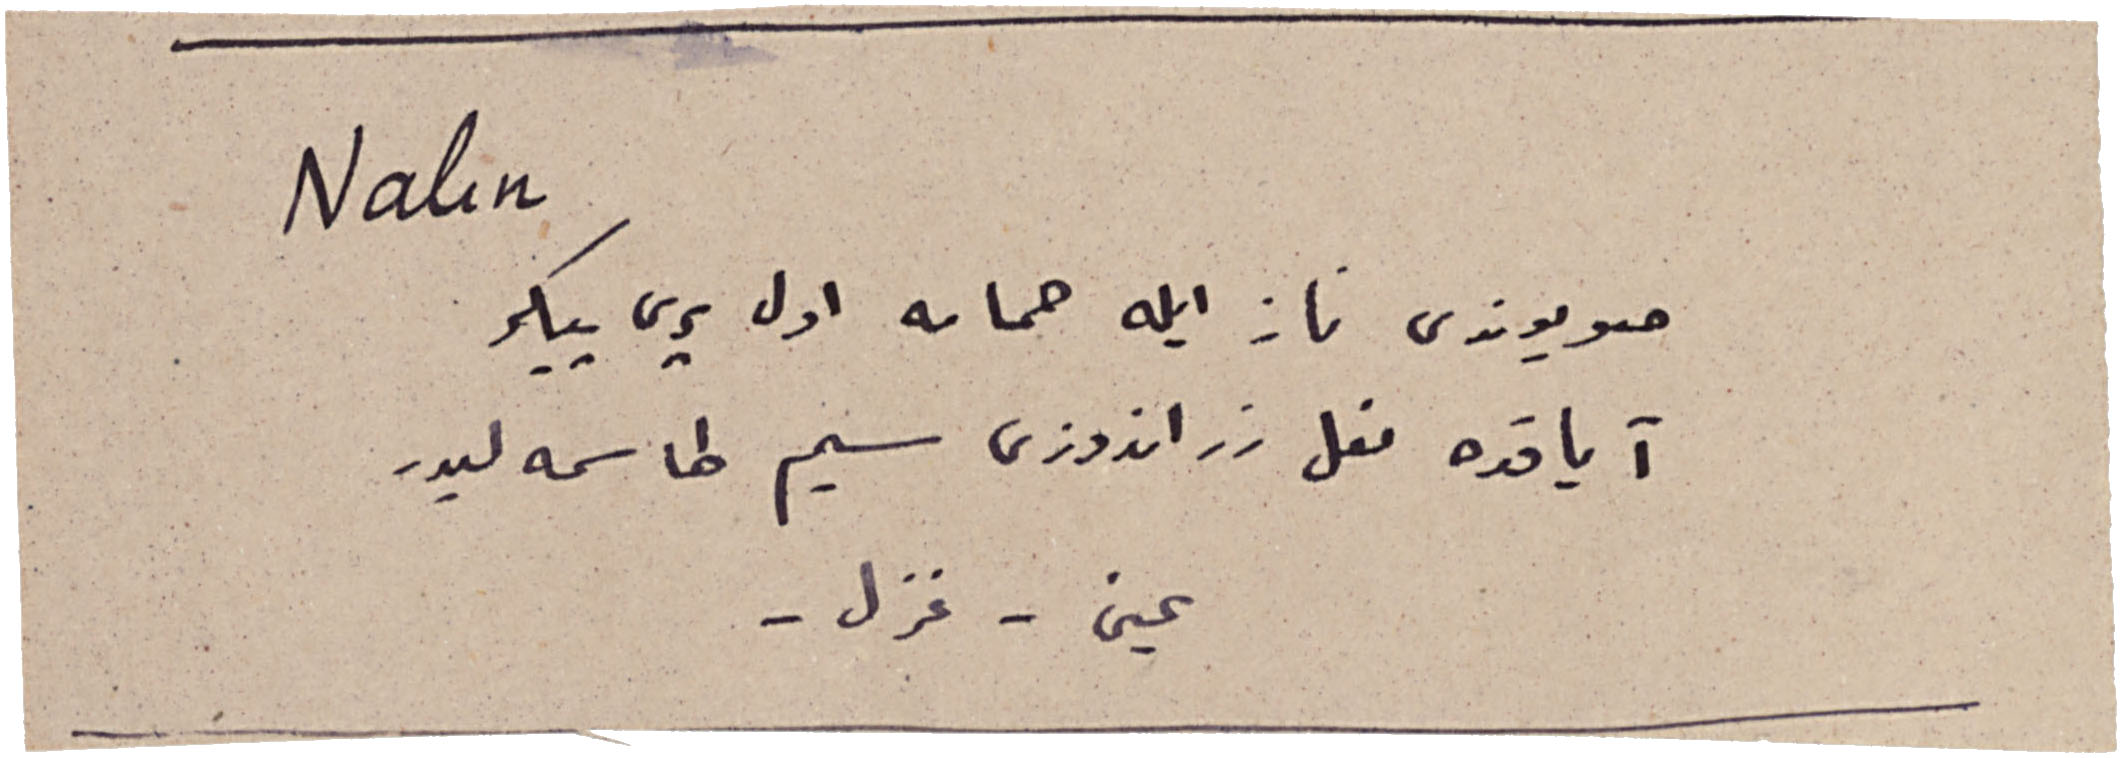 Nalın
صویوندی ناز ایله حمامه اول پری پیکر
آیاقده نعل زر اندوزی سیم طاسمه لیدر
عینی - غزل -